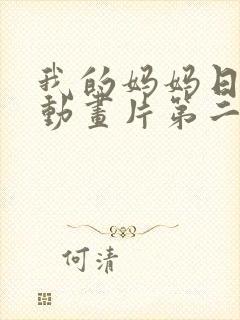 我的妈妈日
動畫片第二
何清